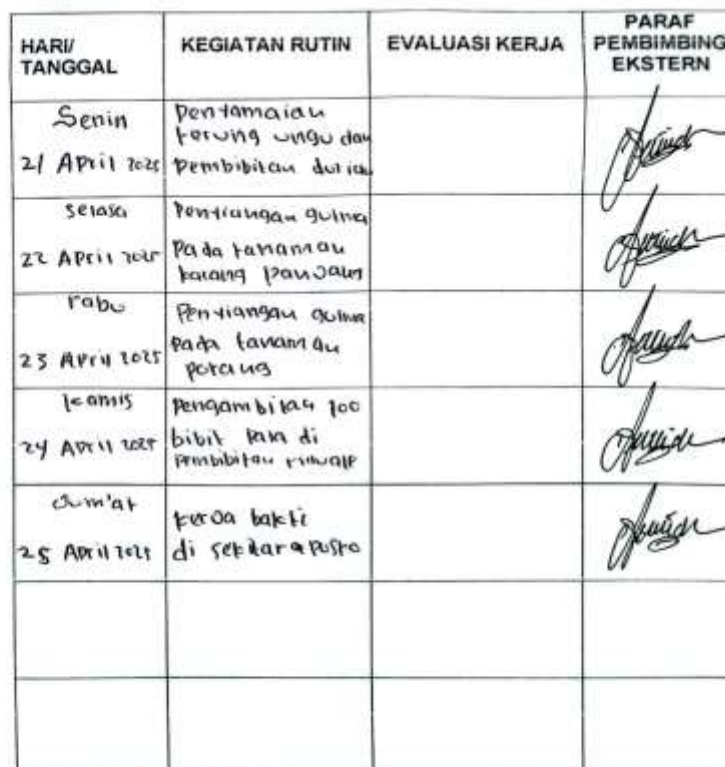 HARI/
TANGGAL
KEGIATAN RUTIN
EVALUASI KERJA
PARAF
PEMBIMBING
EKSTERN
Senin
21 April 2025
Penyamaian
terung ungu dan
Pembibitan durian
Selasa
22 April 2025
Penyiangan gulma
Pada tanaman
kacang panjang
rabu
23 April 2025
Penyiangan gulma
Pada tanaman
porang
kamis
24 April 2025
Pengambilan 100
bibit di
pembibitan
Jum'at
25 April 2025
kerja bakti
di sekitar posko